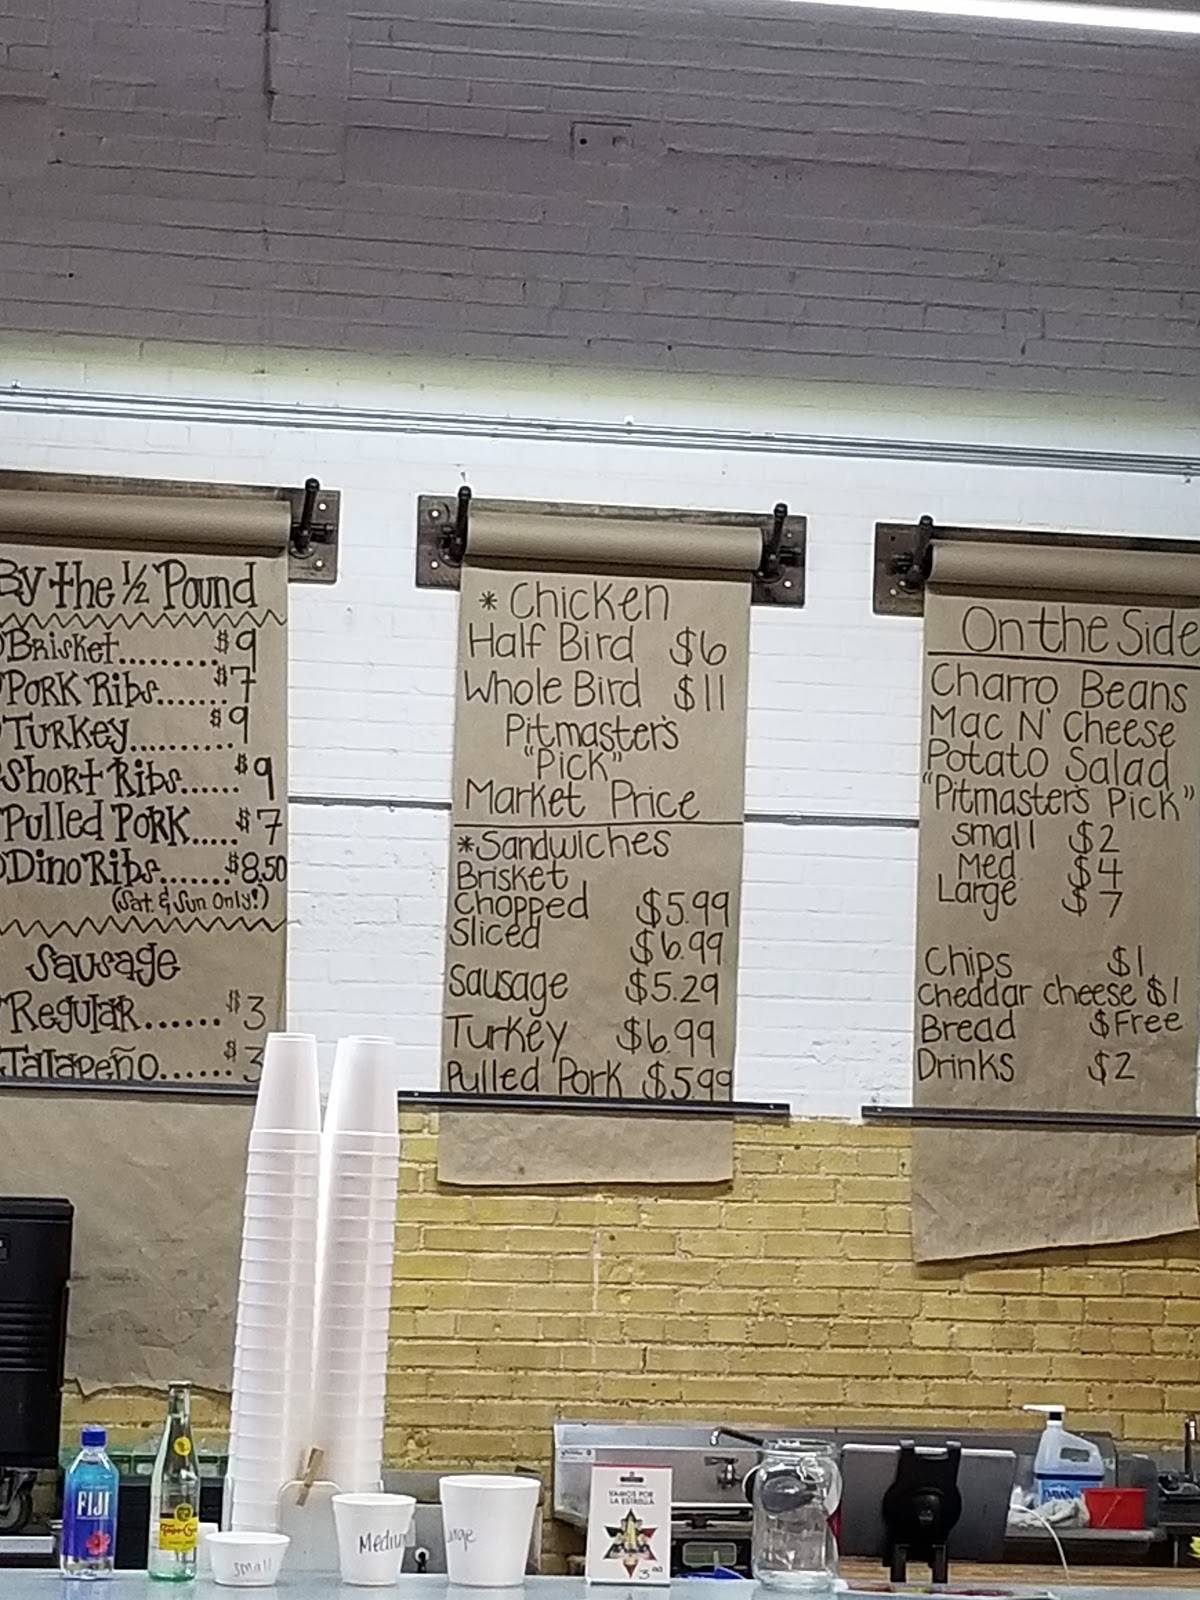 By the ½ Pound
Brisket......... $9
Pork Ribs....... $7
Turkey.......... $9
Short Ribs...... $9
Pulled Pork..... $7
Dino Ribs....... $8.50
(Sat. & Sun Only!)
Sausage
Regular...... $3
Jalapeño...... $3
* Chicken
Half Bird $6
Whole Bird $11
Pitmaster's
"Pick"
Market Price
*Sandwiches
Brisket
Chopped $5.99
Sliced $6.99
Sausage $5.29
Turkey $6.99
Pulled Pork $5.99
On the Side
Charro Beans
Mac N' Cheese
Potato Salad
"Pitmaster's Pick"
small $2
Med $4
Large $7
Chips $1
Cheddar cheese $1
Bread $Free
Drinks $2
FIJI
Topo Chico
small
Medium
Large
VAMOS POR
LA ESTRELLA
$3.00
DAWN